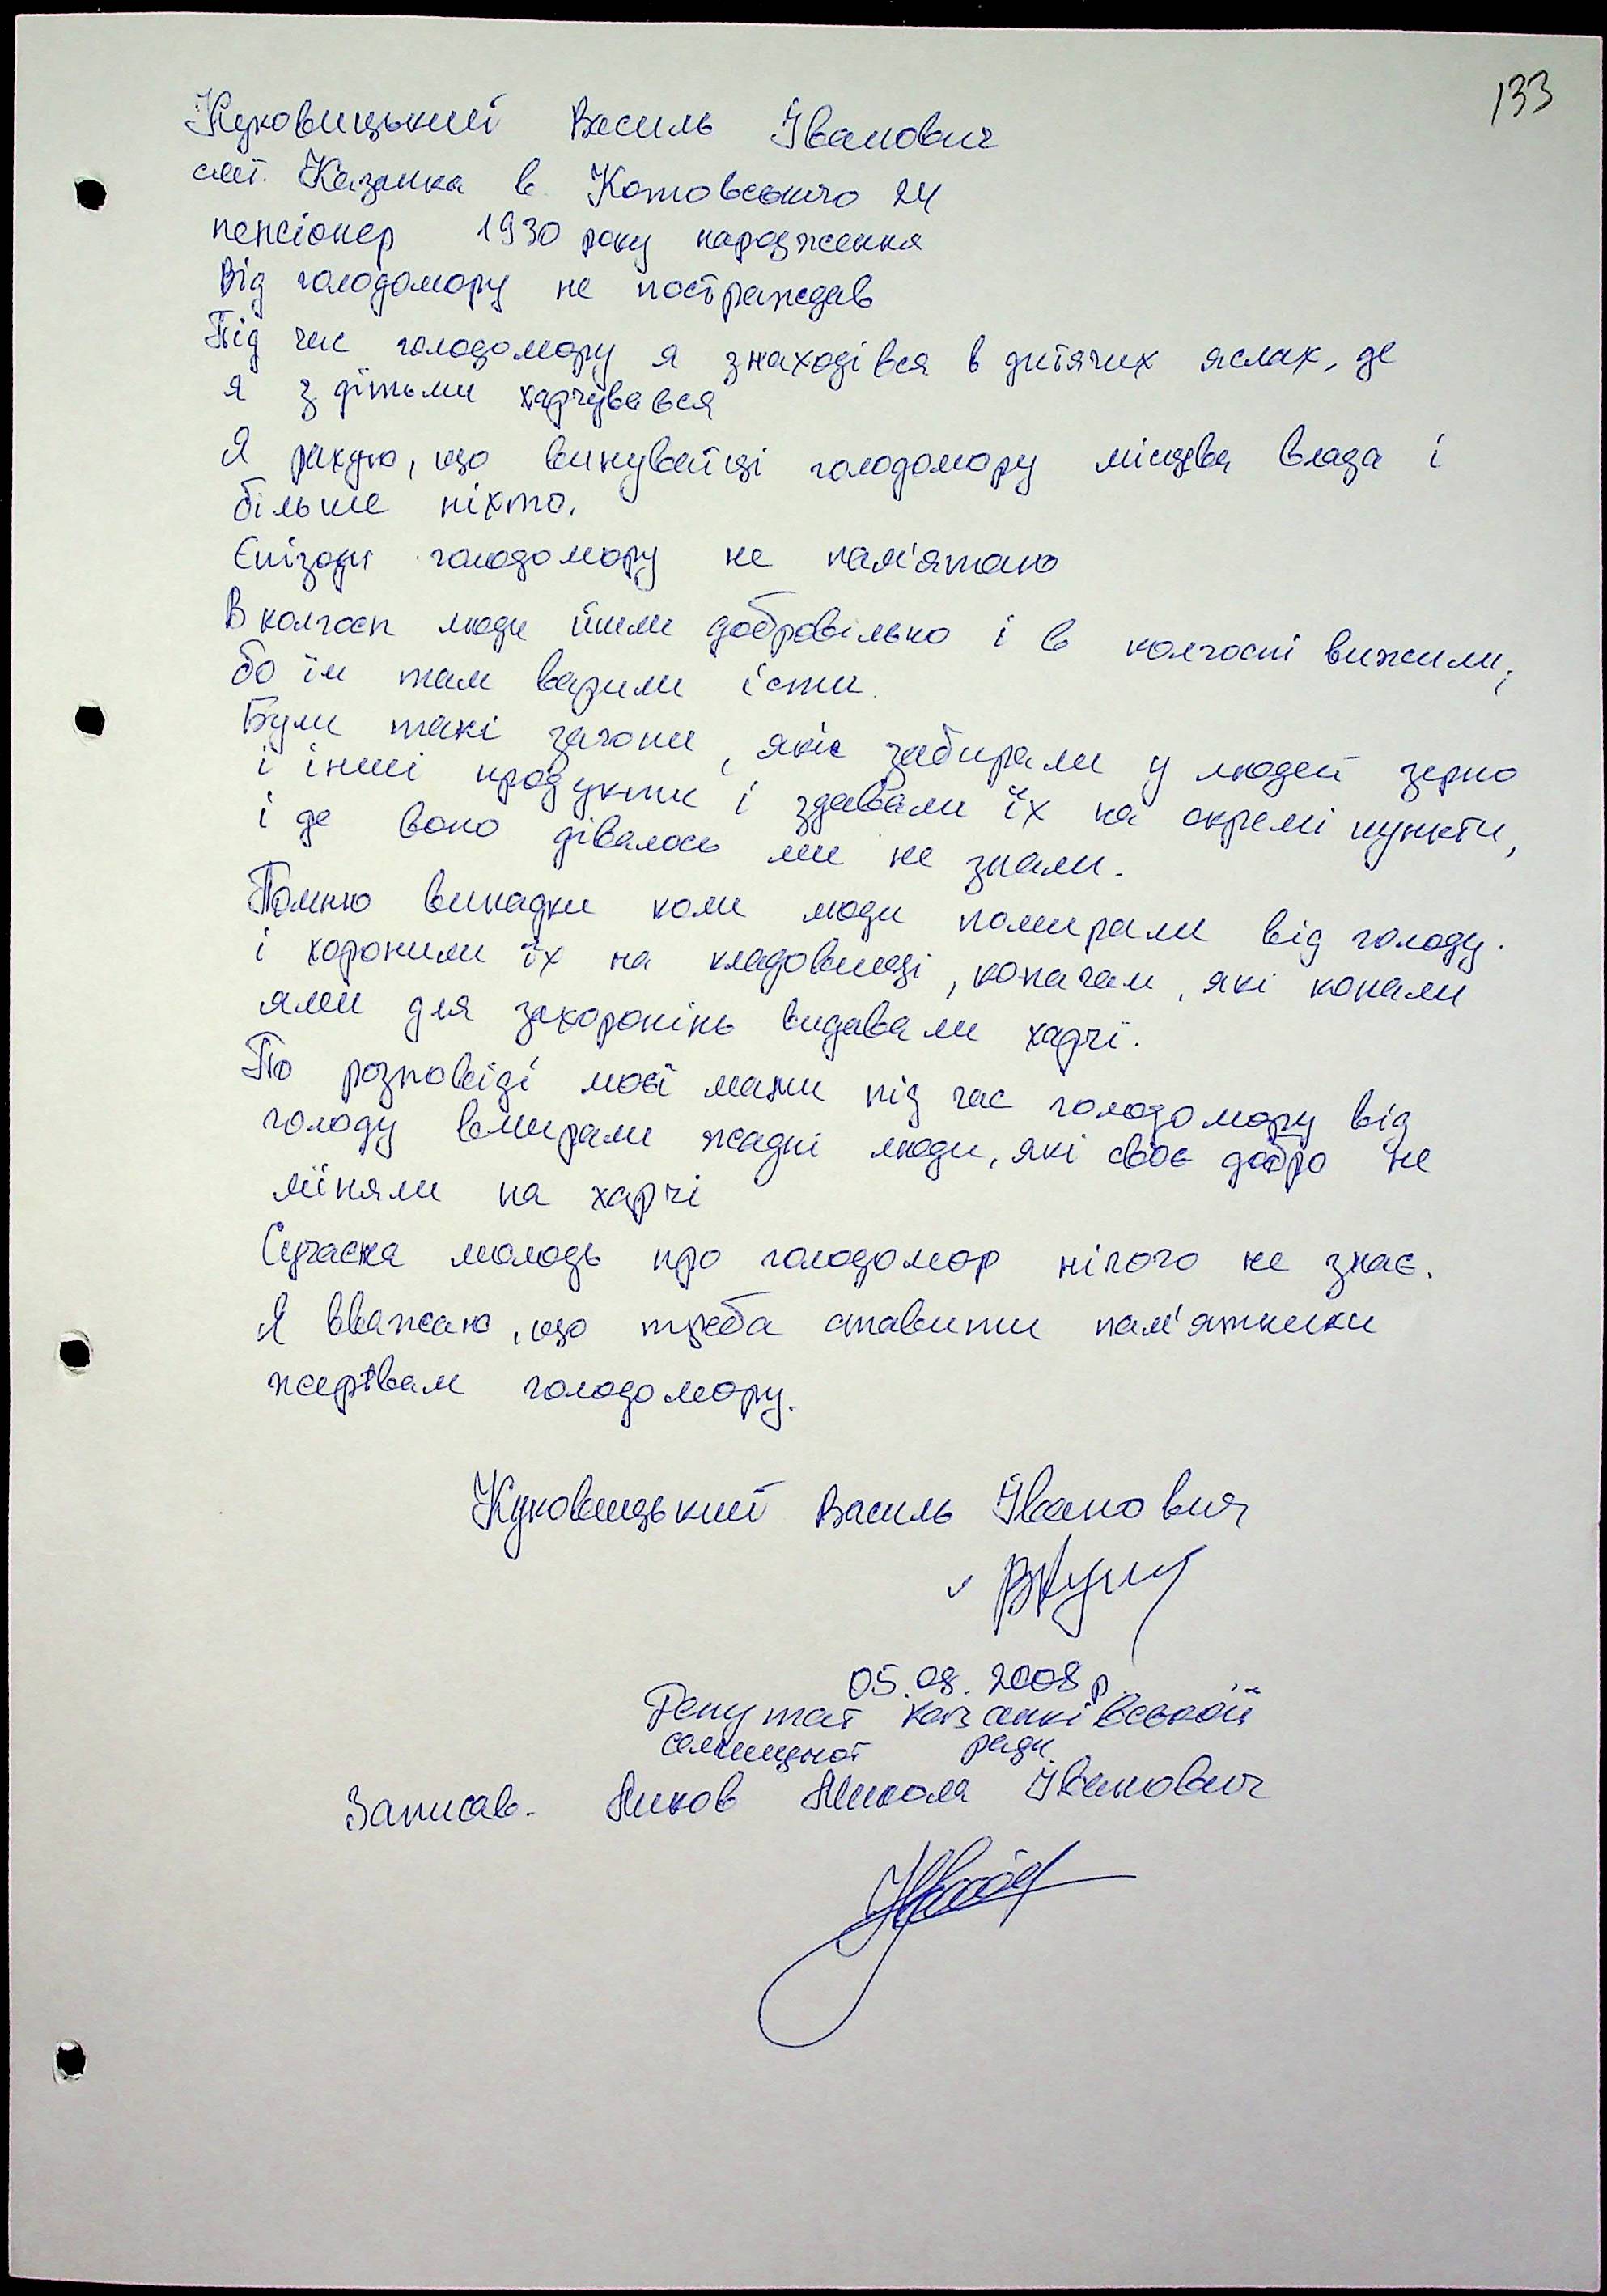 133
Куковицький Василь Іванович
смт. Казанка в. Котовського 24
пенсіонер 1930 року народження
Від голодомору не постраждав
Під час голодомору я знаходівся в дитячих яслах, де
я з дітьми харчувався
Я рахую, що винуватці голодомору місцева влада і
більше ніхто.
Єпізоди голодомору не пам'ятаю
В колгосп люди йшли добровільно і в колгоспі вижили,
бо їм там варили їсти.
Були такі загони, які забирали у людей зерно
і інші продукти і здавали їх на окремі пункти,
і де воно дівалось ми не знали.
Помню випадки коли люди помирали від голоду.
і хоронили їх на кладовищі, копачам, які копали
ями для захоронінь видавали харчі.
По розповіді моєї мами під час голодомору від
голоду вмирали жадні люди, які своє добро не
міняли на харчі
Сучасна молодь про голодомор нічого не знає.
Я вважаю, що треба ставити пам'ятники
жертвам голодомору.
Куковицький Василь Іванович
05.08.2008 р.
Депутат Казанківської
селищної ради
Записав. Миколя Іванович